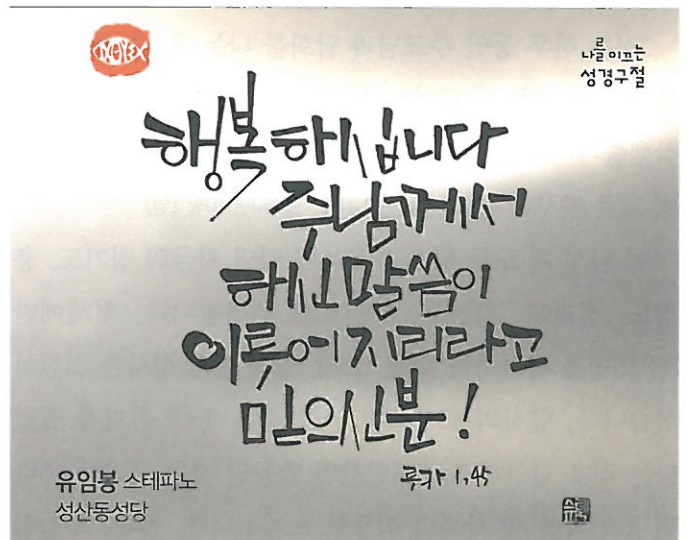 ΙΧΘΥΣ
나를 이끄는
성경구절
행복하십니다
주님께서
하신 말씀이
이루어지리라고
믿으신 분!
루카 1,45
유임봉 스테파노
성산동성당